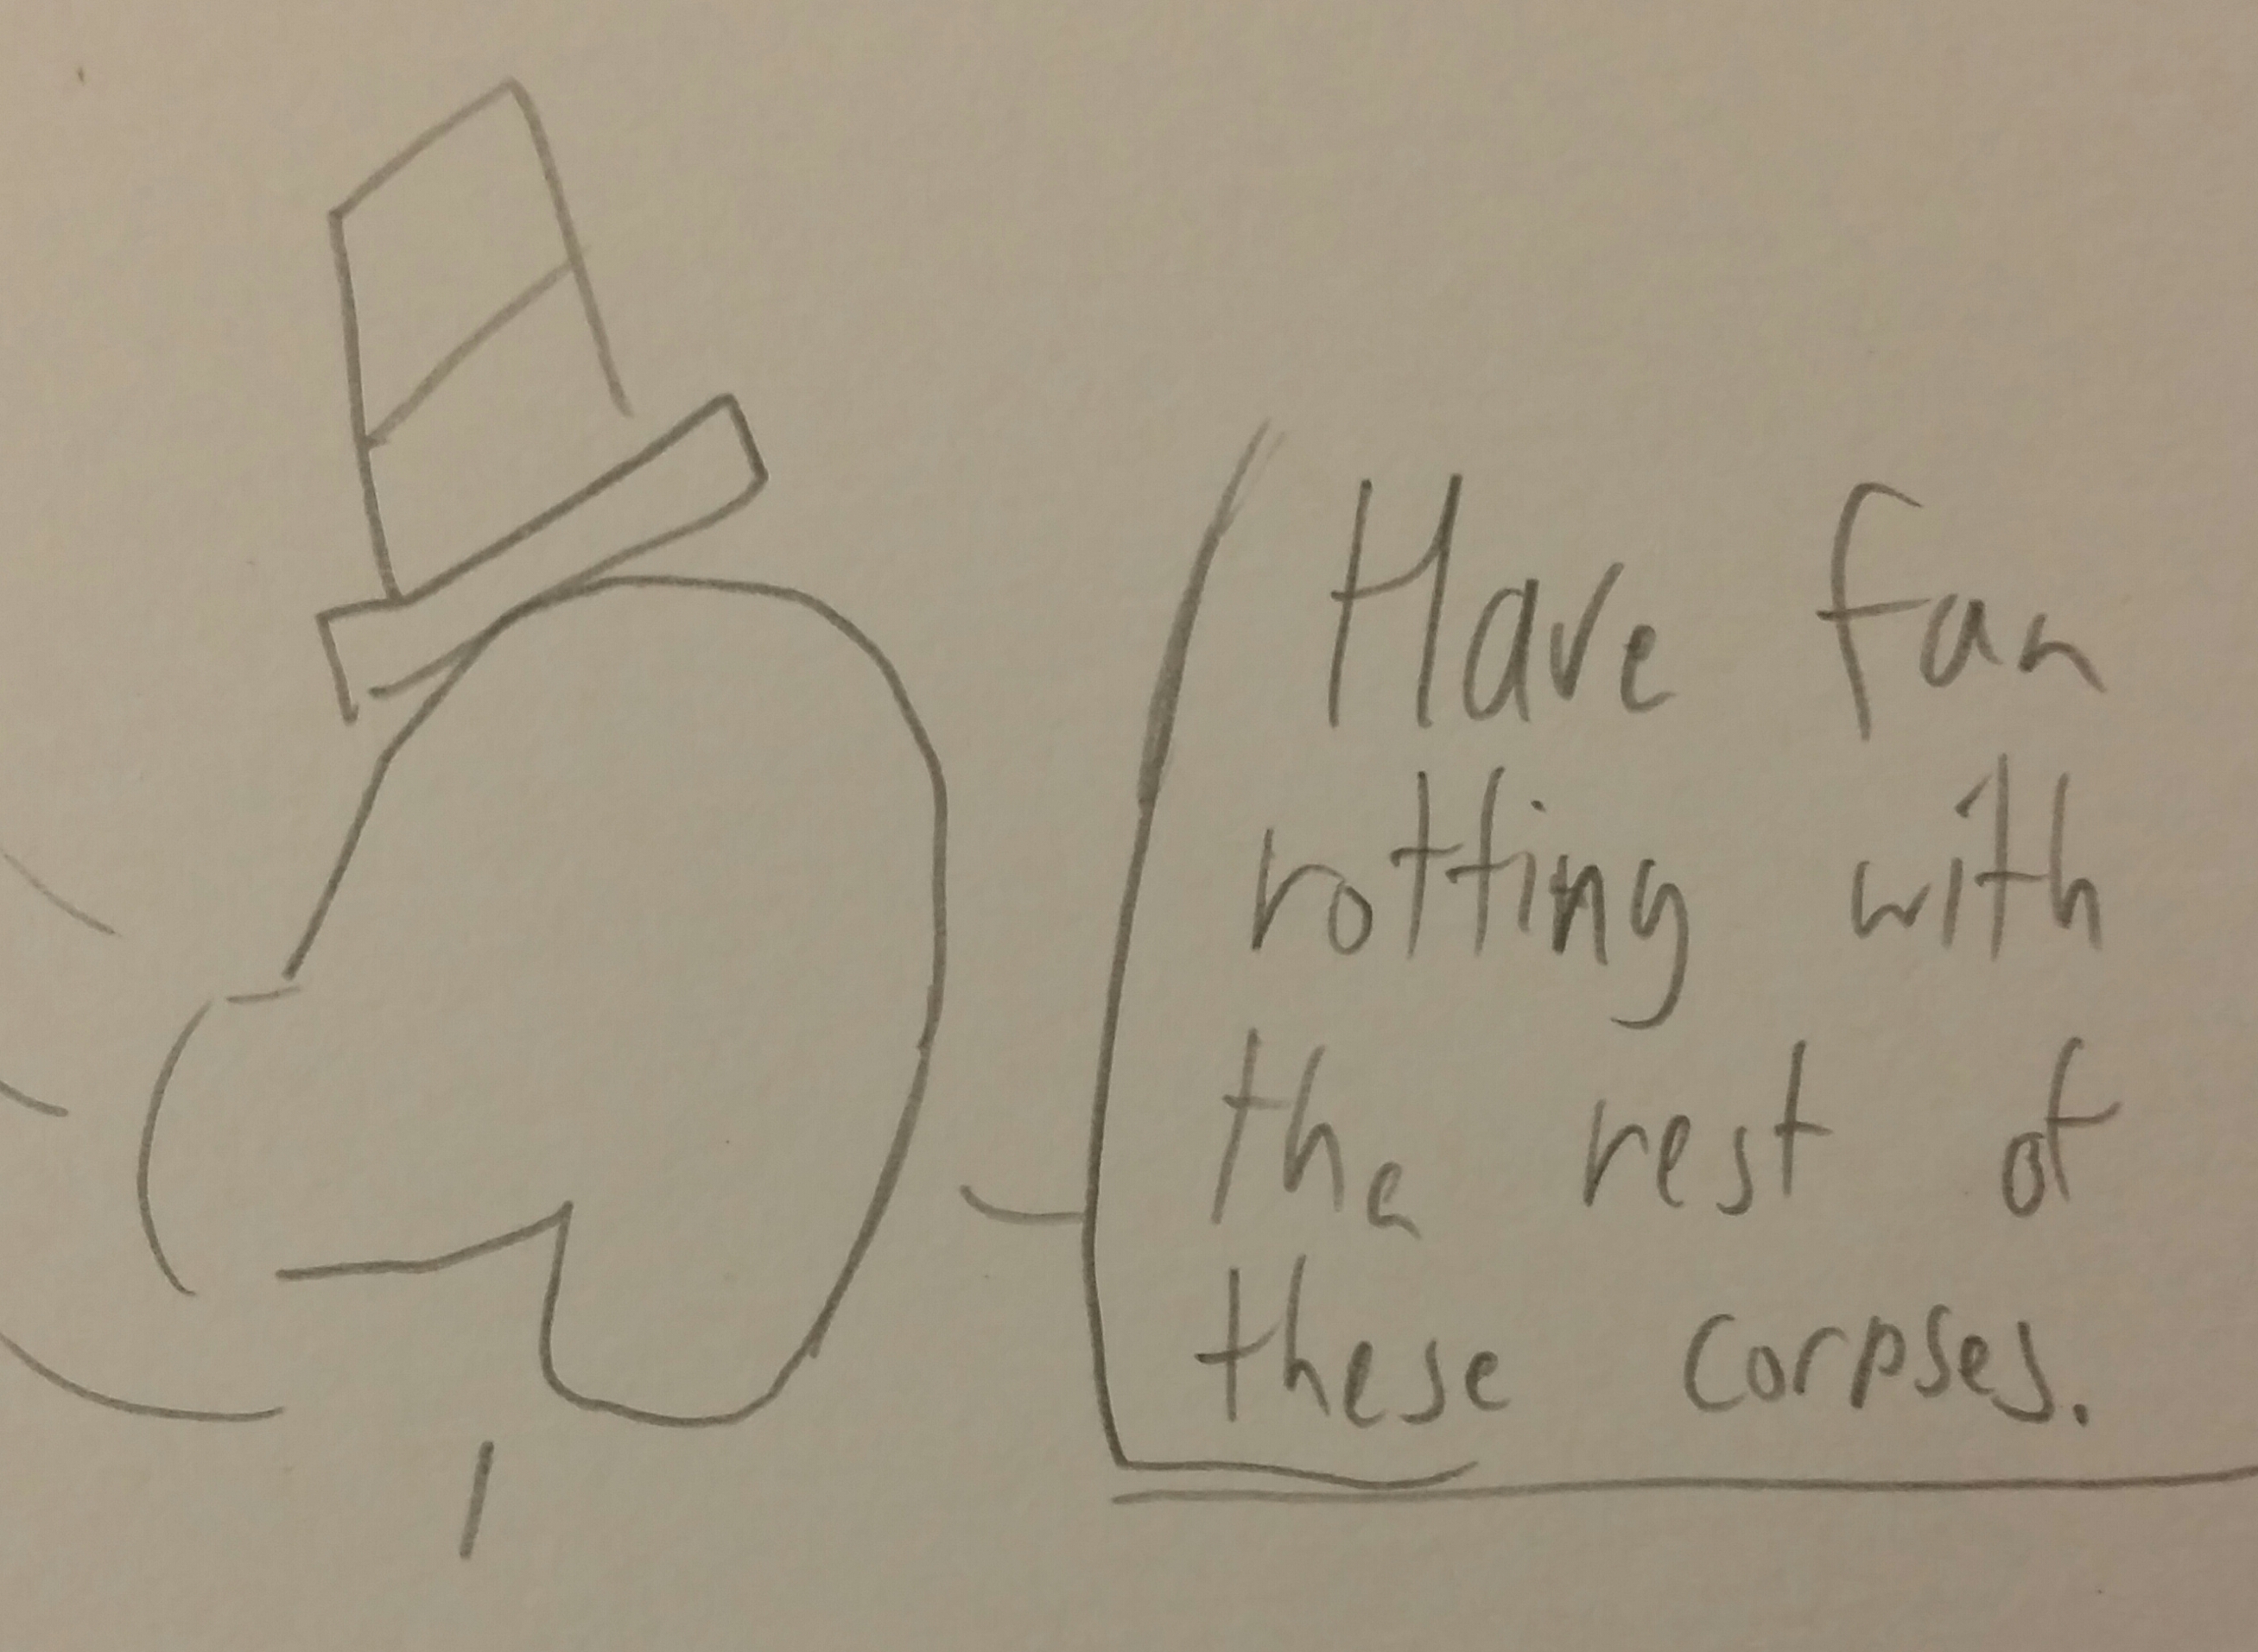 Have fun
rotting with
the rest of
these corpses.